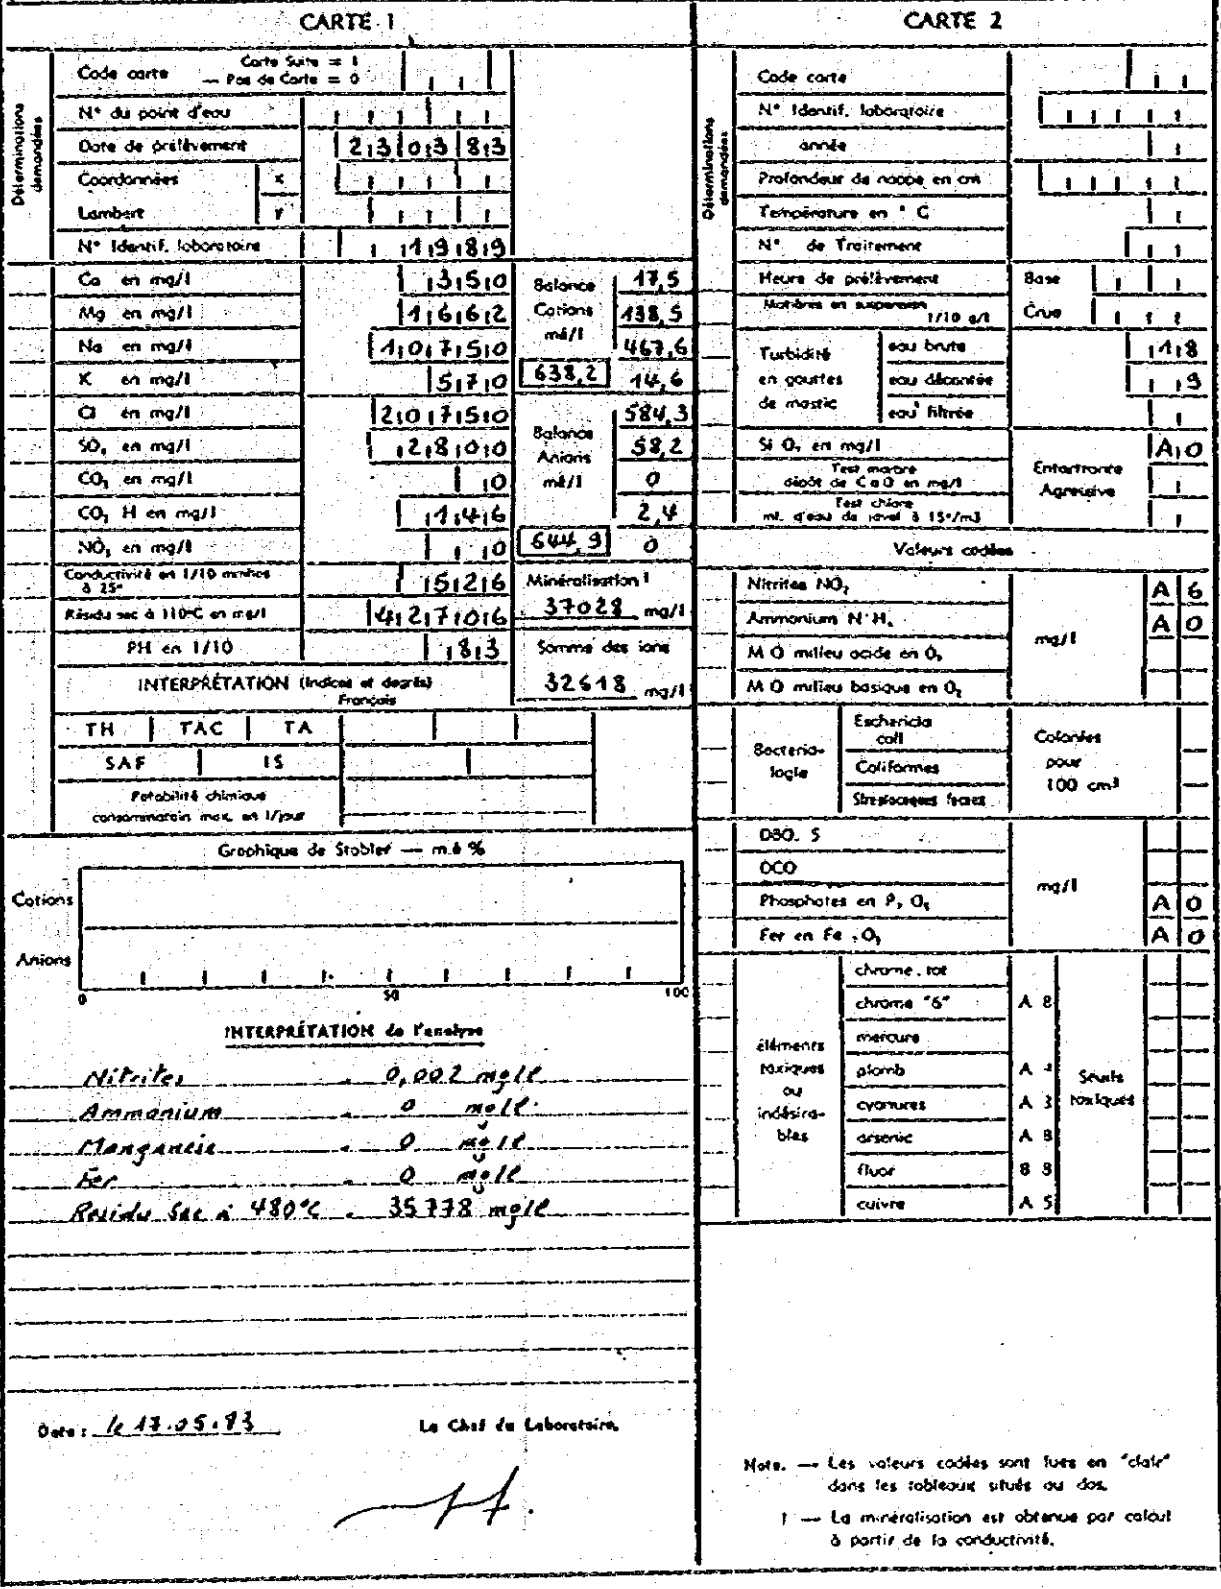 CARTE 1
Déterminations demandées
Code carte
Carte Suite = 1
— Pas de Carte = 0
N° du point d'eau
Date de prélèvement 23 03 83
Coordonnées X
Lambert Y
N° Identif. laboratoire 1989
Ca en mg/l 350
Mg en mg/l 1662
Na en mg/l 10750
K en mg/l 570
Cl en mg/l 20750
SO₄ en mg/l 2800
CO₃ en mg/l 0
CO₃ H en mg/l 146
NO₃ en mg/l 0
Conductivité en 1/10 mmhos à 25° 526
Résidu sec à 110°C en mg/l 42706
PH en 1/10 83
Balance Cations mé/l
17,5
138,5
467,6
638,2 14,6
Balance Anions mé/l
584,3
58,2
0
2,4
644,9 0
Minéralisation 1
37028 mg/l
Somme des ions
32618 mg/l
INTERPRÉTATION (Indices et degrés)
Français
TH TAC TA
SAF IS
Potabilité chimique
consommation max. en l/jour
Graphique de Stabler — m.é %
Cations
Anions
0 50 100
INTERPRÉTATION de l'analyse
Nitrites 0,002 mg/l
Ammonium 0 mg/l
Manganèse 0 mg/l
Fer 0 mg/l
Résidu Sec à 480°C 35778 mg/l
Date : le 17.05.83
Le Chef du Laboratoire,
CARTE 2
Déterminations demandées
Code carte
N° Identif. laboratoire
année
Profondeur de nappe en cm
Température en ° C
N° de Traitement
Heure de prélèvement Base
Matières en suspension 1/10 g/l Crue
Turbidité en gouttes de mastic
eau brute 18
eau décantée 9
eau filtrée
Si O₂ en mg/l A0
Test marbre
dépôt de CaO en mg/l
Entartrante
Agressive
Test chlore
ml. d'eau de javel à 15°/m3
Valeurs codées
Nitrites NO₂ A 6
Ammonium N H₄ A 0
mg/l
M O milieu acide en O₂
M O milieu basique en O₂
Bactériologie
Eschericia coli
Coliformes
Streptocoques fécaux
Colonies pour 100 cm³
DBO. 5
DCO
mg/l
Phosphates en P₂ O₅ A 0
Fer en Fe₂ O₃ A 0
éléments toxiques ou indésirables
chrome. tot
chrome "6" A 8
mercure
plomb A
cyanures A 3
arsenic A 8
fluor 8 8
cuivre A 5
Seuils toxiques
Note. — Les valeurs codées sont lues en "clair"
dans les tableaux situés au dos.
1 — La minéralisation est obtenue par calcul
à partir de la conductivité.